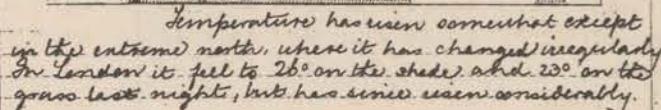 Temperature has risen somewhat except
in the extreme north, where it has changed irregularly
In London it fell to 26° on the shade and 23° on the
grass last night, but has since risen considerably.